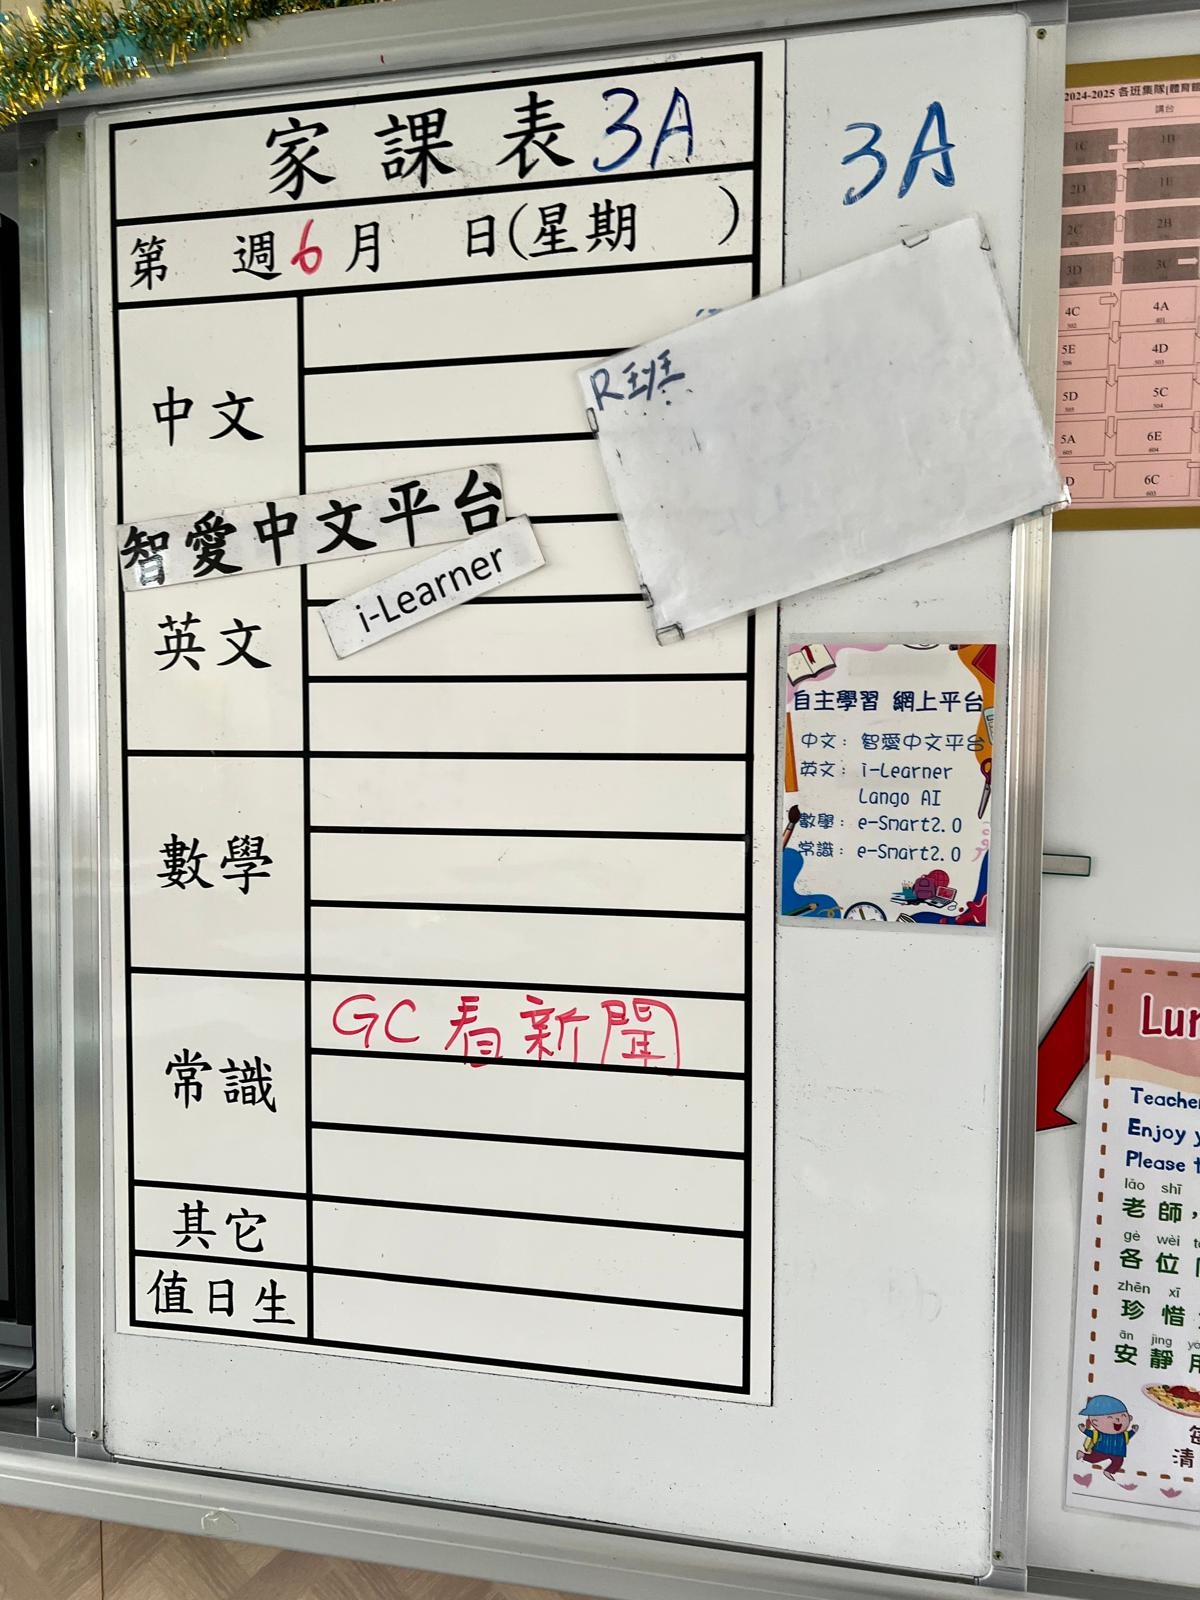 家課表 3A
第 週 6 月 日(星期 )
中文
智愛中文平台
i-Learner
英文
數學
常識
GC 看新聞
其它
值日生
3A
R班
自主學習 網上平台
中文：智愛中文平台
英文：i-Learner
Lango AI
數學：e-Smart2.0
常識：e-Smart2.0
2024-2025 各班集隊(體育館
講台
1C
1B
2D
1E
2C
2B
3D
3C
4C
4A
5E
4D
5D
5C
5A
6E
D
6C
Lun
Teache
Enjoy y
Please t
lǎo shī
老師，
gè wèi
各位
zhēn xī
珍惜
ān jìng
安靜用
每
清